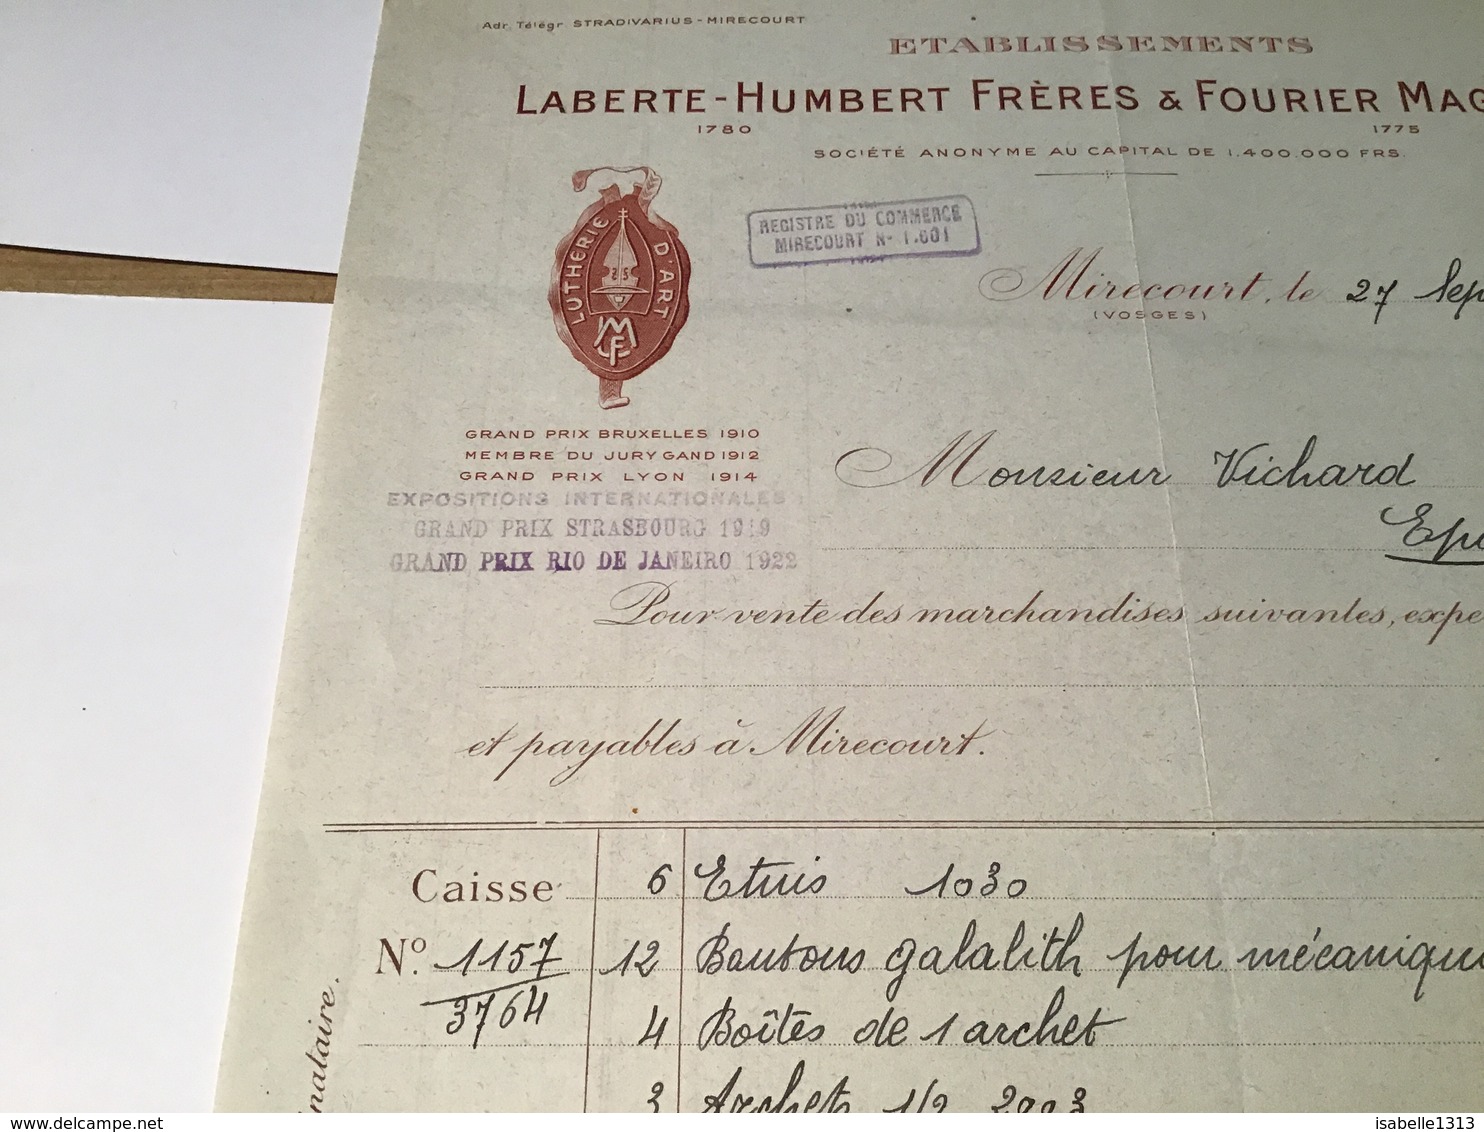 Adr. Télégr. STRADIVARIUS-MIRECOURT
ETABLISSEMENTS
LABERTE-HUMBERT FRÈRES & FOURIER MAG
1780 1775
SOCIÉTÉ ANONYME AU CAPITAL DE 1.400.000 FRS.
LUTHERIE D'ART
REGISTRE DU COMMERCE
MIRECOURT N- 1.601
Mirecourt, le 27 Sep
(VOSGES)
GRAND PRIX BRUXELLES 1910
MEMBRE DU JURY GAND 1912
GRAND PRIX LYON 1914
EXPOSITIONS INTERNATIONALES
GRAND PRIX STRASBOURG 1919
GRAND PRIX RIO DE JANEIRO 1922
Monsieur Vichard
Epi
Pour vente des marchandises suivantes, expé
et payables à Mirecourt.
Caisse 6 Etuis 1030
N° 1157 12 Boutons galalith pour mécanique
3764
4 Boîtes de 1 archet
3 Archets 1/2 2003
nataire.
delcampe.net
isabelle1313